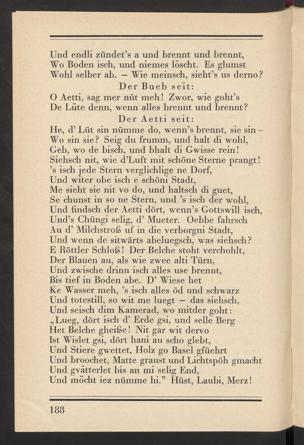 Und endli zündet's a und brennt und brennt,
Wo Boden isch, und niemes löscht. Es glumst
Wohl selber ab. — Wie meinsch, sieht's us derno?
Der Bueb seit:
O Aetti, sag mer nüt meh! Zwor, wie goht's
De Lüte denn, wenn alles brennt und brennt?
Der Aetti seit:
He, d' Lüt sin nümme do, wenn's brennt, sie sin –
Wo sin sie? Seig du frumm, und halt di wohl,
Geb, wo de bisch, und bhalt di Gwisse rein!
Siehsch nit, wie d'Luft mit schöne Sterne prangt!
's isch jede Stern verglichlige ne Dorf,
Und witer obe isch e schöni Stadt,
Me sieht sie nit vo do, und haltsch di guet,
Se chunst in so ne Stern, und 's isch der wohl,
Und findsch der Aetti dört, wenn's Gottswill isch,
Und's Chüngi selig, d' Mueter. Oebbe fahrsch
Au d' Milchstroß uf in die verborgni Stadt,
Und wenn de sitwärts abeluegsch, was siehsch?
E Röttler Schloß! Der Belche stoht verchohlt,
Der Blauen au, als wie zwee alti Türn,
Und zwische drinn isch alles use brennt,
Bis tief in Boden abe. D' Wiese het
Ke Wasser meh, 's isch alles öd und schwarz
Und totestill, so wit me luegt — das siehsch,
Und seisch dim Kamerad, wo mitder goht:
„Lueg, dört isch d' Erde gsi, und selle Berg
Het Belche gheiße! Nit gar wit dervo
Ist Wislet gsi, dört hani au scho glebt,
Und Stiere gwettet, Holz go Basel gfüehrt
Und broochet, Matte graust und Lichtspöh gmacht
Und gvätterlet bis an mi selig End,
Und möcht iez nümme hi.” Hüst, Laubi, Merz!
188